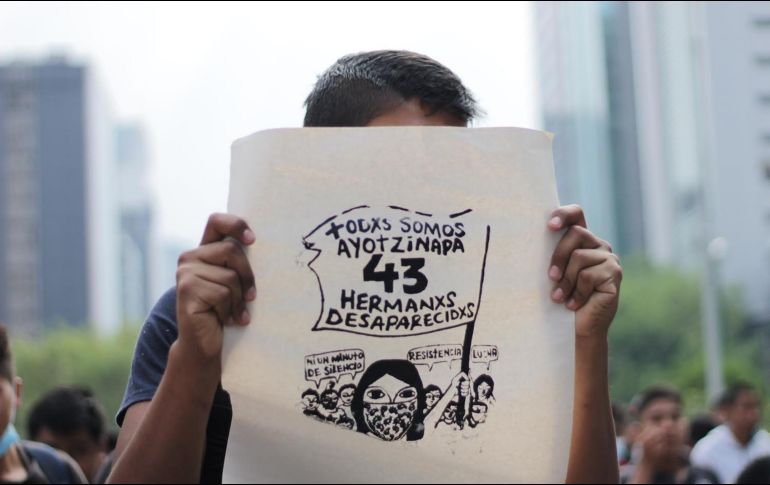 TODXS SOMOS
AYOTZINAPA
43
HERMANXS
DESAPARECIDXS
NI UN MINUTO
DE SILENCIO
RESISTENCIA
LUCHA